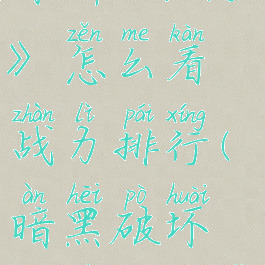 zěn me kàn
》怎么看
zhàn lì pái xíng
战力排行(
àn hēi pò huài
暗黑破坏